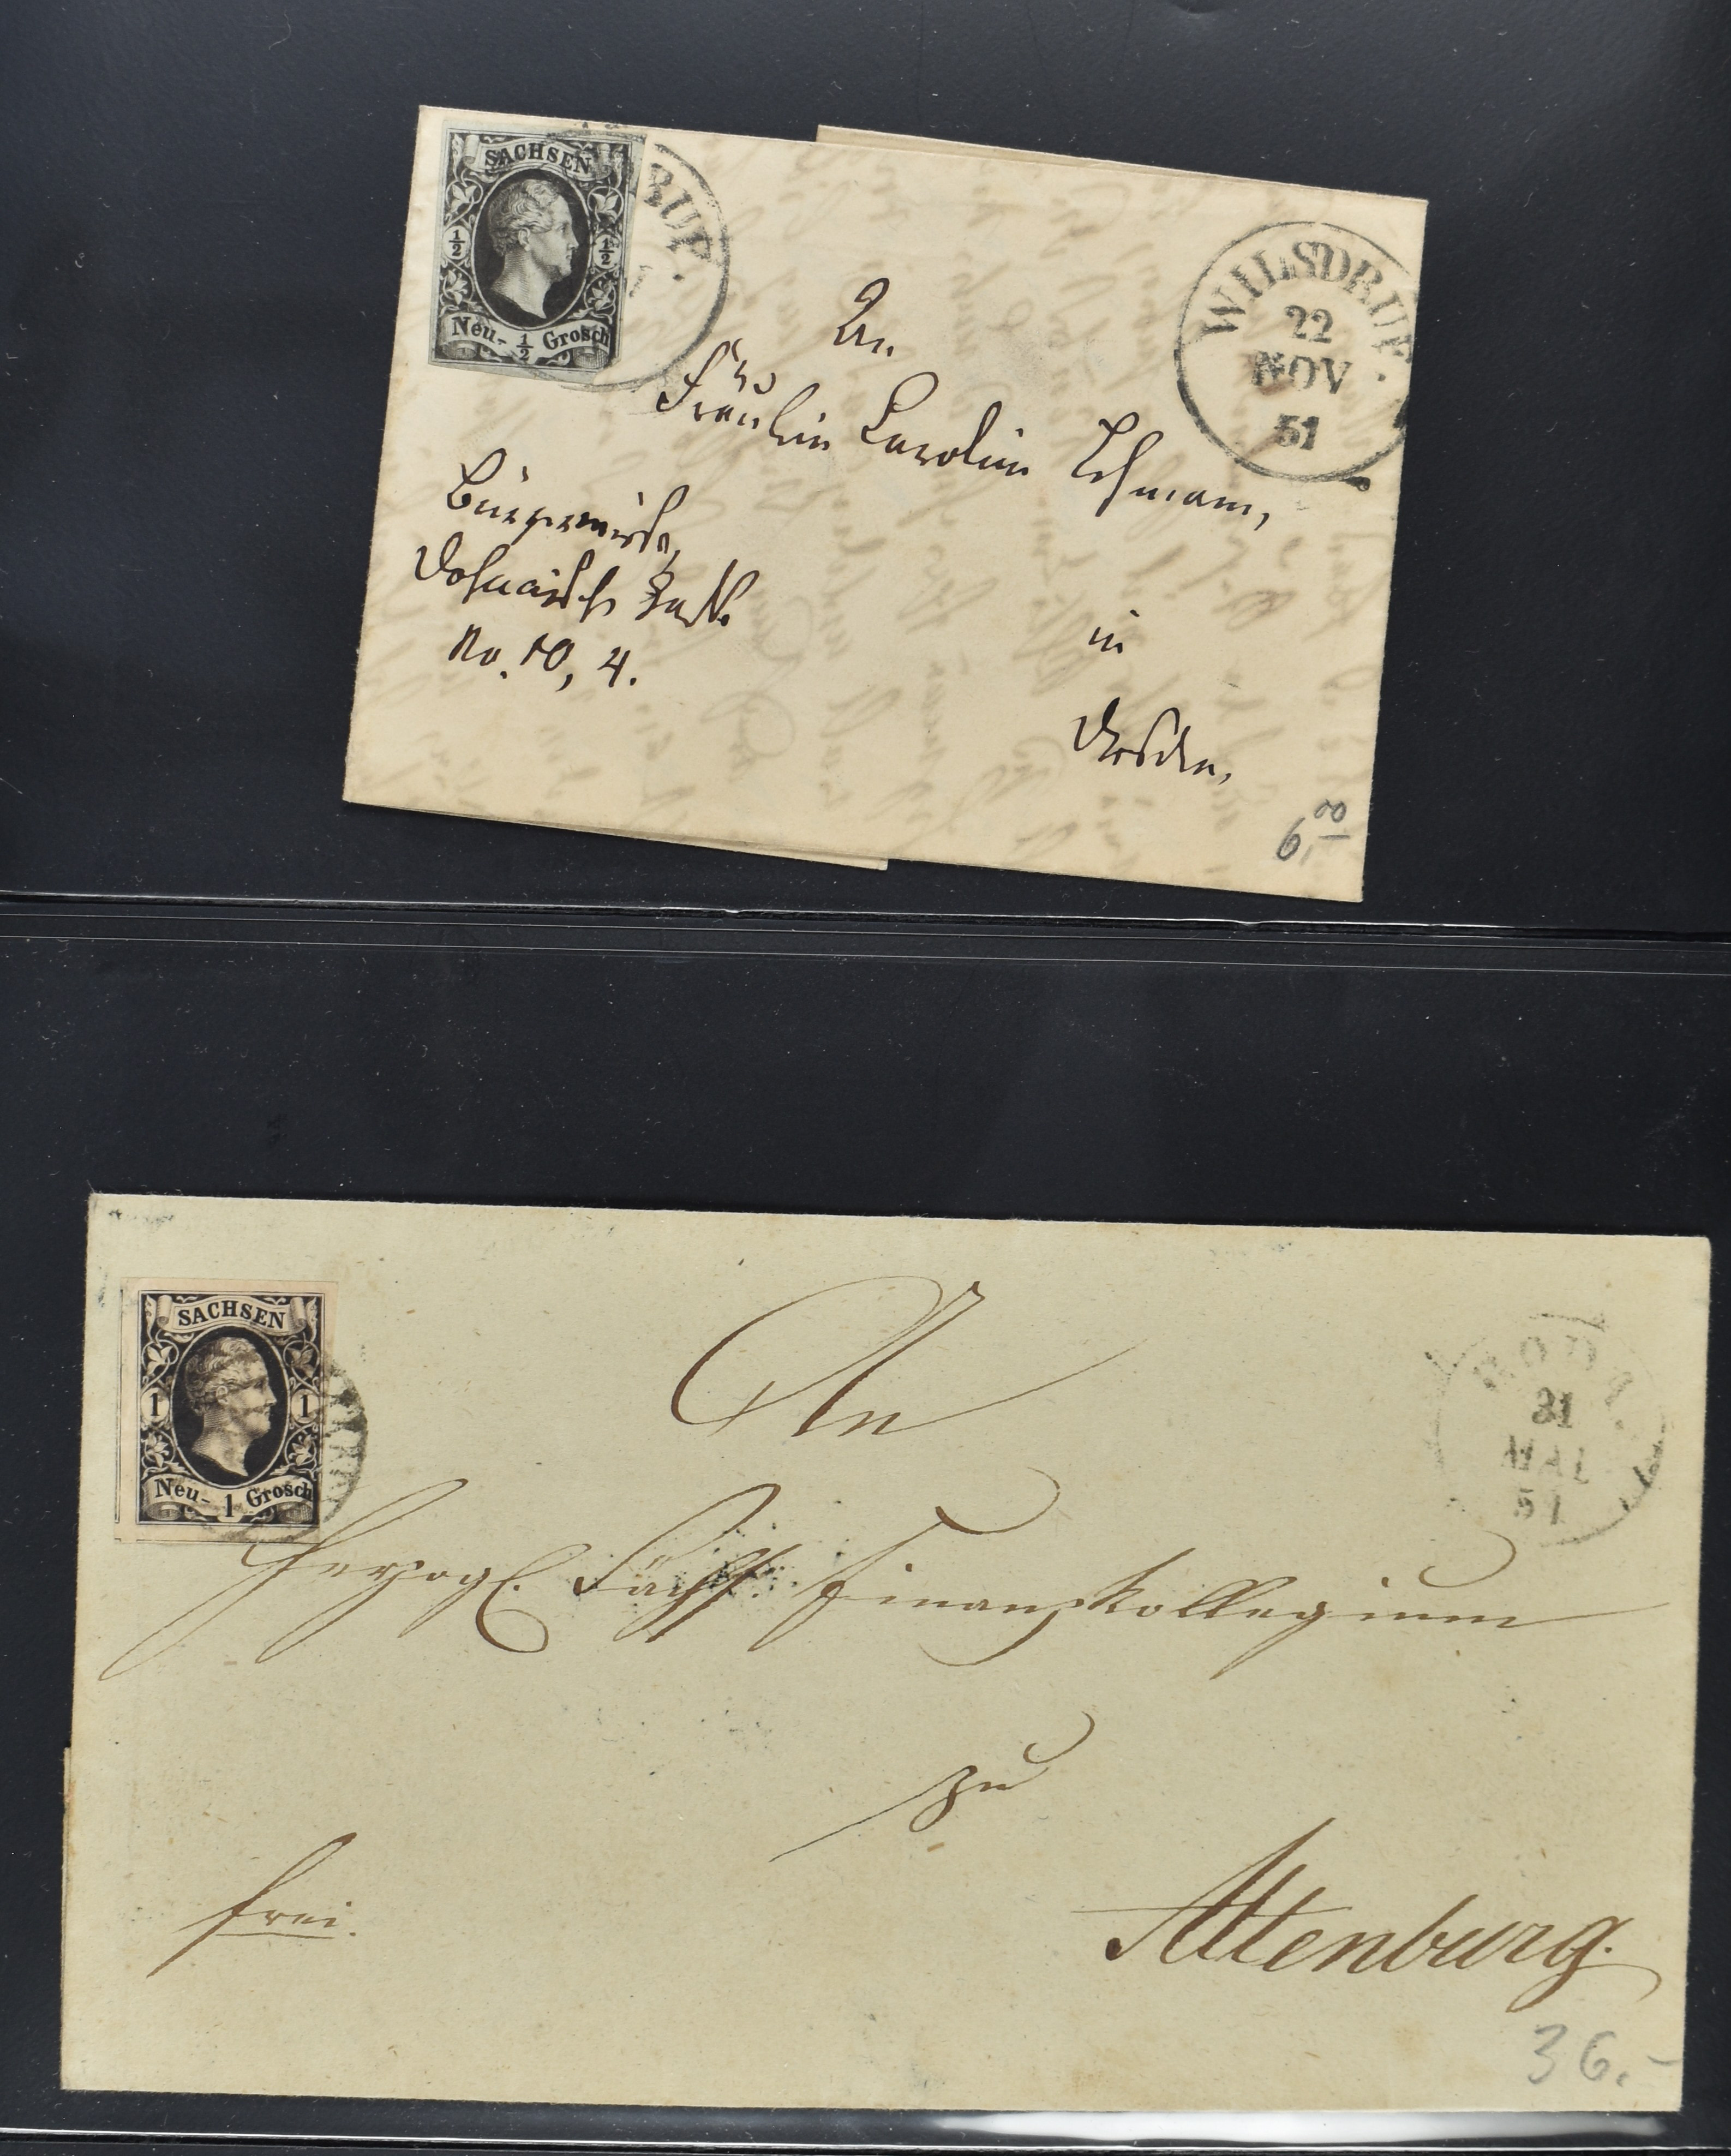 SACHSEN
1/2 1/2
Neu- 1/2 Grosch
RUF.
WILSDRUF.
22
NOV
51
An
Fräulein Carolin Lehmann,
Bürgerwiese,
Dohnaische
No. 10, 4.
in
Dresden,
6,00
SACHSEN
1 1
Neu- 1 Grosch
31
MAI
51
An
Herzogl. Sächs. Finanzkollegium
zu
frei.
Altenburg.
36.-